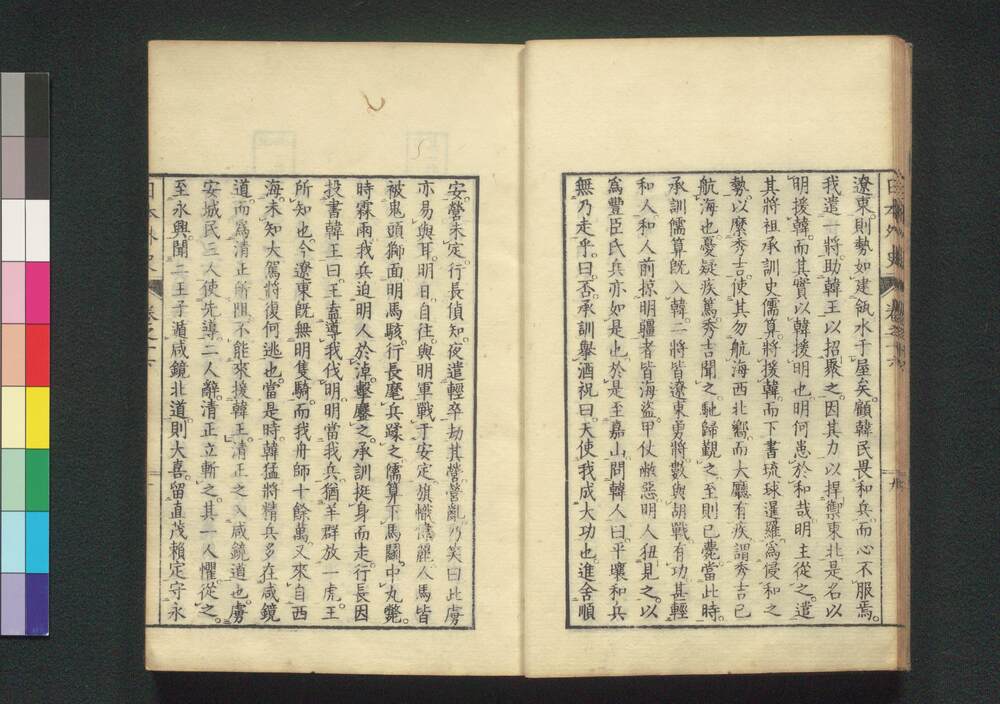 遼東則勢如建瓴水于屋矣顧韓民畏和兵而心不服焉
我遣一將助韓王以招聚之因其力以捍禦東北是名以
明援韓而其實以韓援明也明何患於和哉明主從之遣
其將祖承訓史儒算將援韓而下書琉球暹羅爲侵和之
勢以縻秀吉使其勿航海西北嚮而大廳有疾謂秀吉已
航海也憂疑疾篤秀吉聞之馳歸覲之至則已薨當此時
承訓儒算既入韓二將皆遼東勇將數與胡戰有功甚輕
和人和人前掠明疆者皆海盜甲仗敝惡明人狃見之以
爲豐臣氏兵亦如是也於是至嘉山問韓人曰平壤和兵
無乃走乎曰否承訓舉酒祝曰天使我成大功也進舍順
安營未定行長偵知夜遣輕卒劫其營營亂乃笑曰此虜
亦易與耳明日自往與明軍戰于安定旗幟儁麗人馬皆
被鬼頭獅面明馬駭行長麾兵蹂之儒算下馬鬭中丸斃
時霖雨我兵迫明人於淖擊鏖之承訓挺身而走行長因
投書韓王曰王盍導我伐明明當我兵猶羊群放一虎王
所知也今遼東既無明隻騎而我舟師十餘萬又來自西
海未知大駕將復何逃也當是時韓猛將精兵多在咸鏡
道而爲清正所阻不能來援韓王清正之入咸鏡道也虜
安城民三人使先導二人辭清正立斬之其一人懼從之
至永興聞二王子遁咸鏡北道則大喜留直茂賴定守永